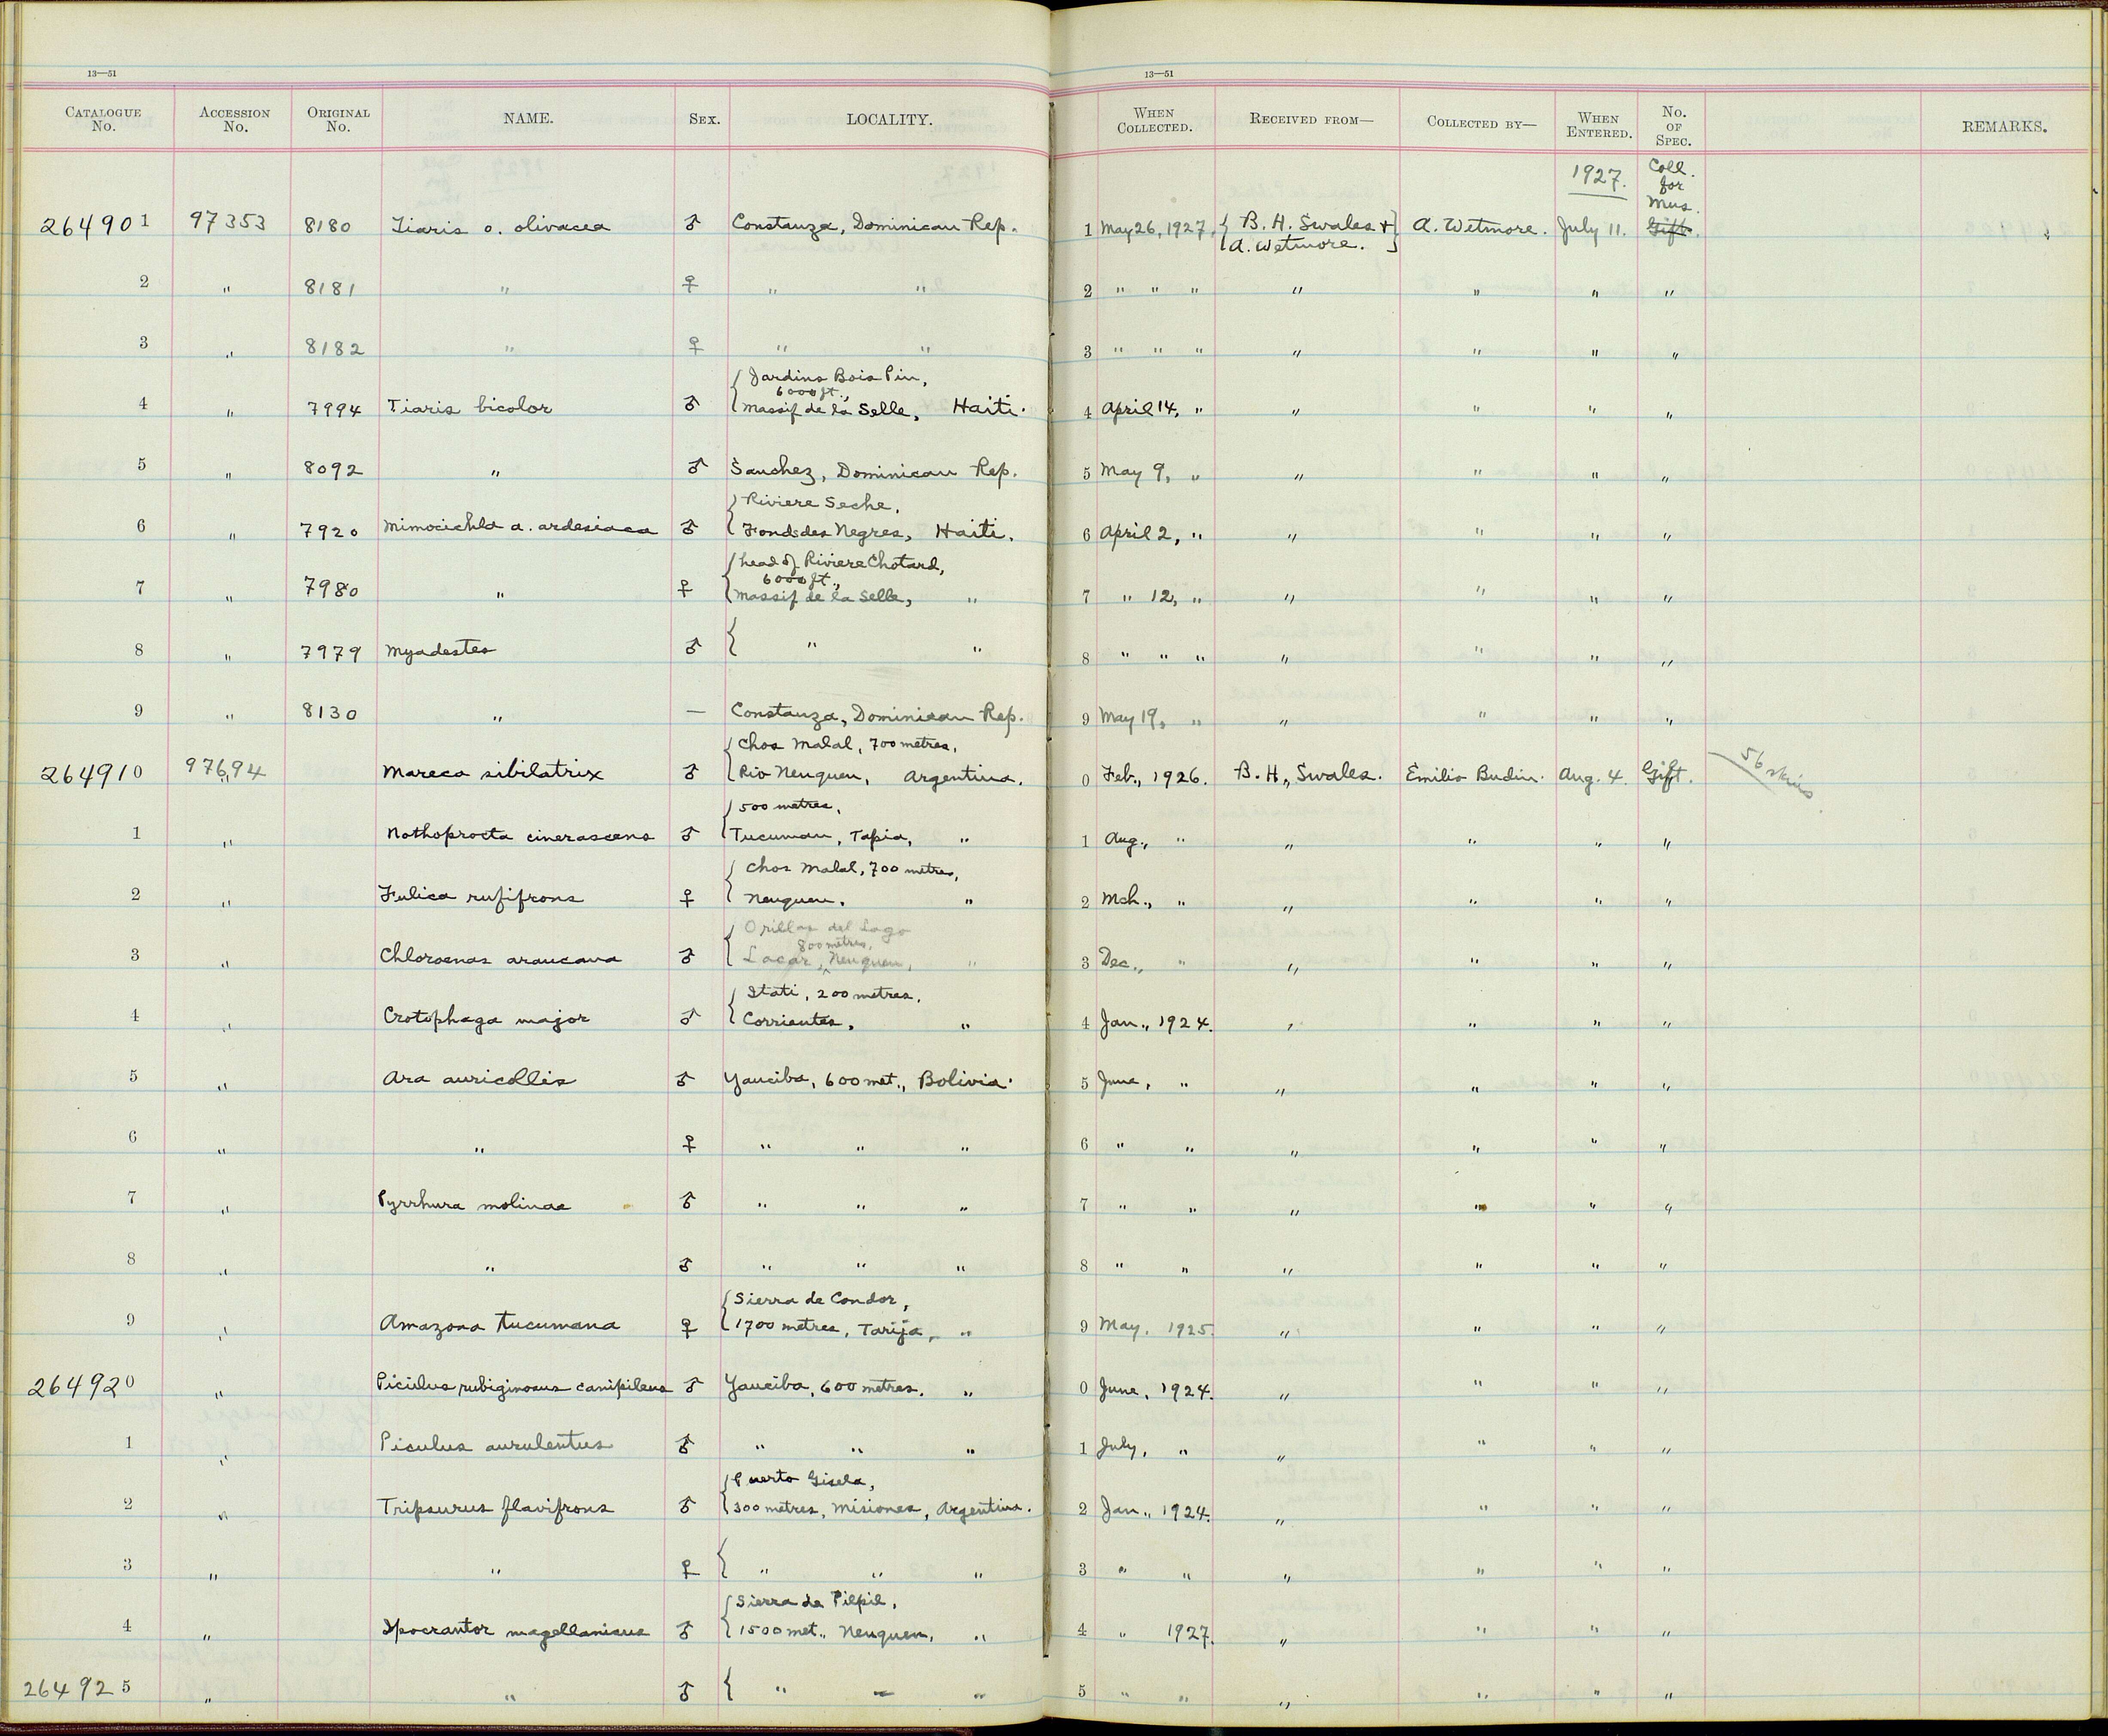 13—51 13—51
CATALOGUE No. ACCESSION No. ORIGINAL No. NAME. SEX. LOCALITY. WHEN COLLECTED. RECEIVED FROM— COLLECTED BY— WHEN ENTERED. No. OF SPEC. REMARKS.
1927. Coll. for Mus.
264901 97353 8180 Tiaris o. olivacea ♂ Constanza, Dominican Rep. 1 May 26, 1927. { B. H. Swales + A. Wetmore. } A. Wetmore. July 11. Gift.
2 " 8181 " ♀ " " 2 " " " " " " "
3 " 8182 " ♀ " " 3 " " " " " " "
{ Jardins Bois Pin,
6000 ft.,
4 " 7994 Tiaris bicolor ♂ Massif de la Selle, Haiti. 4 April 14, " " " " "
5 " 8092 " ♂ Sanchez, Dominican Rep. 5 May 9, " " " " "
{ Riviere Seche,
6 " 7920 Mimocichla a. ardesiaca ♂ Fonds des Negres, Haiti. 6 April 2, " " " " "
{ head of Riviere Chotard,
6000 ft.,
7 " 7980 " ♀ Massif de la Selle, " 7 " 12, " " " " "
8 " 7979 Myadestes ♂ { " " 8 " " " " " " "
9 " 8130 " — Constanza, Dominican Rep. 9 May 19, " " " " "
{ Chos Malal, 700 metres,
264910 97694 Mareca sibilatrix ♂ Rio Neuquen, Argentina. 0 Feb., 1926. B. H. Swales. Emilio Budin. Aug. 4. Gift. 56 skins.
{ 500 metres,
1 " Nothoprocta cinerascens ♂ Tucuman, Tapia, " 1 Aug., " " " " "
{ Chos Malal, 700 metres,
2 " Fulica rufifrons ♀ Neuquen. " 2 Mch., " " " " "
{ Orillas del Lago
800 metres,
3 " Chloroenas araucana ♂ Lacar, Neuquen, " 3 Dec., " " " " "
{ Itati, 200 metres,
4 " Crotophaga major ♂ Corrientes, " 4 Jan., 1924. " " " "
5 " Ara auricollis ♂ Yauciba, 600 met., Bolivia. 5 June, " " " " "
6 " " ♀ " " " 6 " " " " " "
7 " Pyrrhura molinae ♂ " " " 7 " " " " " "
8 " " ♂ " " " 8 " " " " " "
{ Sierra de Condor,
9 " Amazona tucumana ♀ 1700 metres, Tarija, " 9 May. 1925. " " " "
264920 " Piculus rubiginosus canipileus ♂ Yauciba, 600 metres. " 0 June, 1924. " " " "
1 " Piculus aurulentus ♂ " " " 1 July, " " " " "
{ Puerto Gisela,
2 " Tripsurus flavifrons ♂ 300 metres, Misiones, Argentina. 2 Jan., 1924. " " " "
3 " " ♀ { " " " 3 " " " " " "
{ Sierra de Pilpil,
4 " Ipocrantor magellanicus ♂ 1500 met., Neuquen, " 4 " 1927. " " " "
264925 " " ♂ { " " " 5 " " " " " "